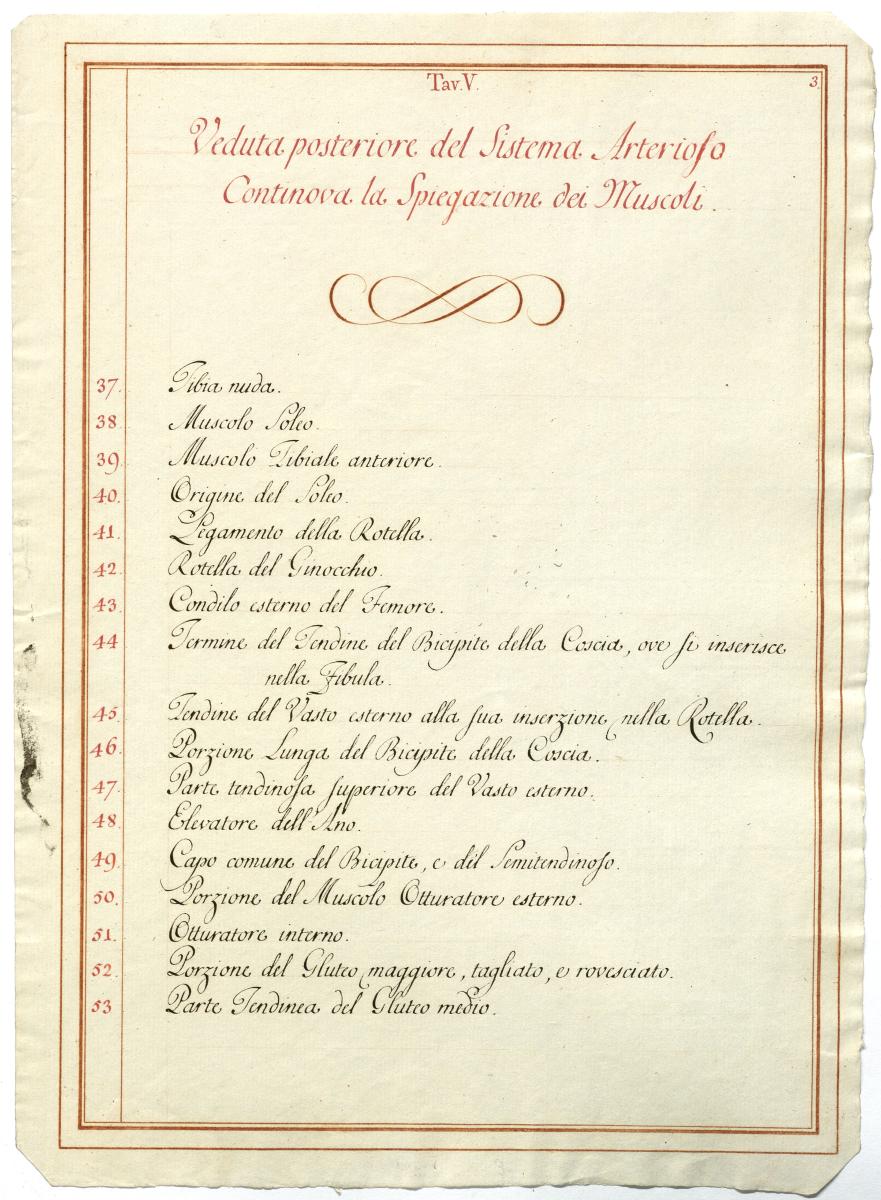 Tav. V.
3.
Veduta posteriore del Sistema Arterioſo
Continova la Spiegazione dei Muscoli.
37. Tibia nuda.
38. Muscolo Soleo.
39. Muscolo Tibiale anteriore.
40. Origine del Soleo.
41. Legamento della Rotella.
42. Rotella del Ginocchio.
43. Condilo esterno del Femore.
44 Termine del Tendine del Bicipite della Coscia, ove ſi inserisce
nella Fibula.
45. Tendine del Vasto esterno alla ſua inserzione nella Rotella.
46. Porzione Lunga del Bicipite della Coscia.
47. Parte tendinoſa ſuperiore del Vasto esterno.
48. Elevatore dell'Ano.
49. Capo comune del Bicipite, e del Semitendinoſo.
50. Porzione del Muscolo Otturatore esterno.
51. Otturatore interno.
52. Porzione del Gluteo maggiore, tagliato, e rovesciato.
53 Parte Tendinea del Gluteo medio.